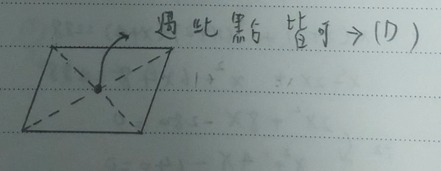 過此點皆可→(D)